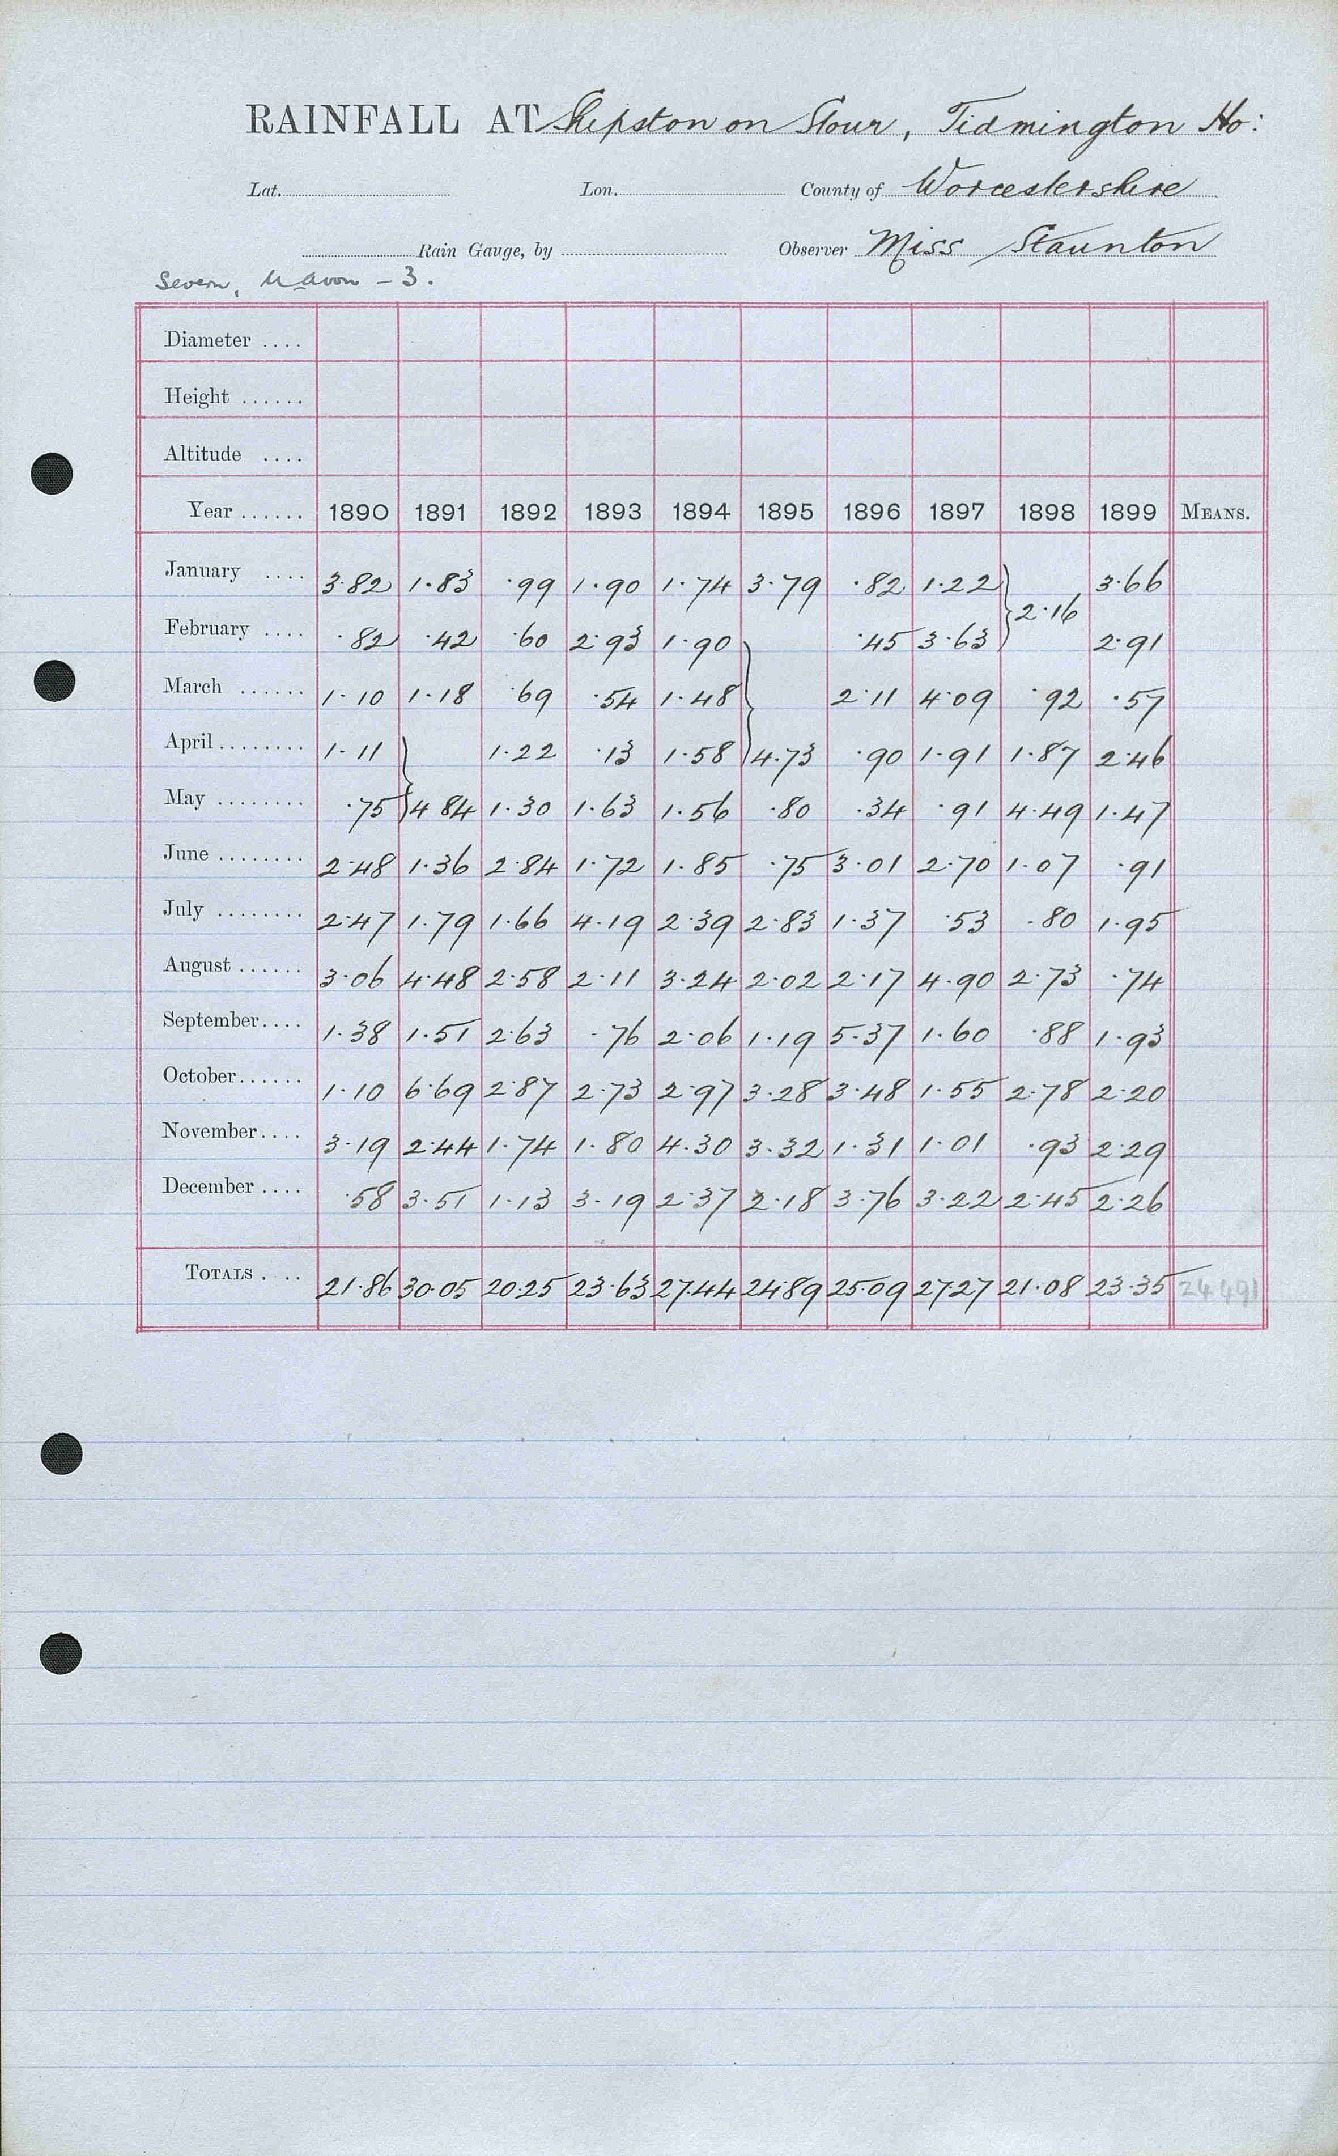 RAINFALL AT Shipston on Stour, Tidmington Ho:
Lat. Lon. County of Worcestershire
Rain Gauge, by Observer Miss Staunton
Severn, U Avon - 3.
Diameter ....
Height ......
Altitude ....
Year ...... 1890 1891 1892 1893 1894 1895 1896 1897 1898 1899 MEANS.
January .... 3.82 1.83 .99 1.90 1.74 3.79 .82 1.22 } 2.16 3.66
February .... .82 .42 .60 2.93 1.90 } .45 3.63 2.91
March ...... 1.10 1.18 .69 .54 1.48 2.11 4.09 .92 .57
April ........ 1.11 } 1.22 .13 1.58 4.73 .90 1.91 1.87 2.46
May ........ .75 4.84 1.30 1.63 1.56 .80 .34 .91 4.49 1.47
June ........ 2.48 1.36 2.84 1.72 1.85 .75 3.01 2.70 1.07 .91
July ........ 2.47 1.79 1.66 4.19 2.39 2.83 1.37 .53 .80 1.95
August ...... 3.06 4.48 2.58 2.11 3.24 2.02 2.17 4.90 2.73 .74
September.... 1.38 1.51 2.63 .76 2.06 1.19 5.37 1.60 .88 1.93
October...... 1.10 6.69 2.87 2.73 2.97 3.28 3.48 1.55 2.78 2.20
November.... 3.19 2.44 1.74 1.80 4.30 3.32 1.31 1.01 .93 2.29
December .... .58 3.51 1.13 3.19 2.37 2.18 3.76 3.22 2.45 2.26
TOTALS .... 21.86 30.05 20.25 23.63 27.44 24.89 25.09 27.27 21.08 23.35 24 491